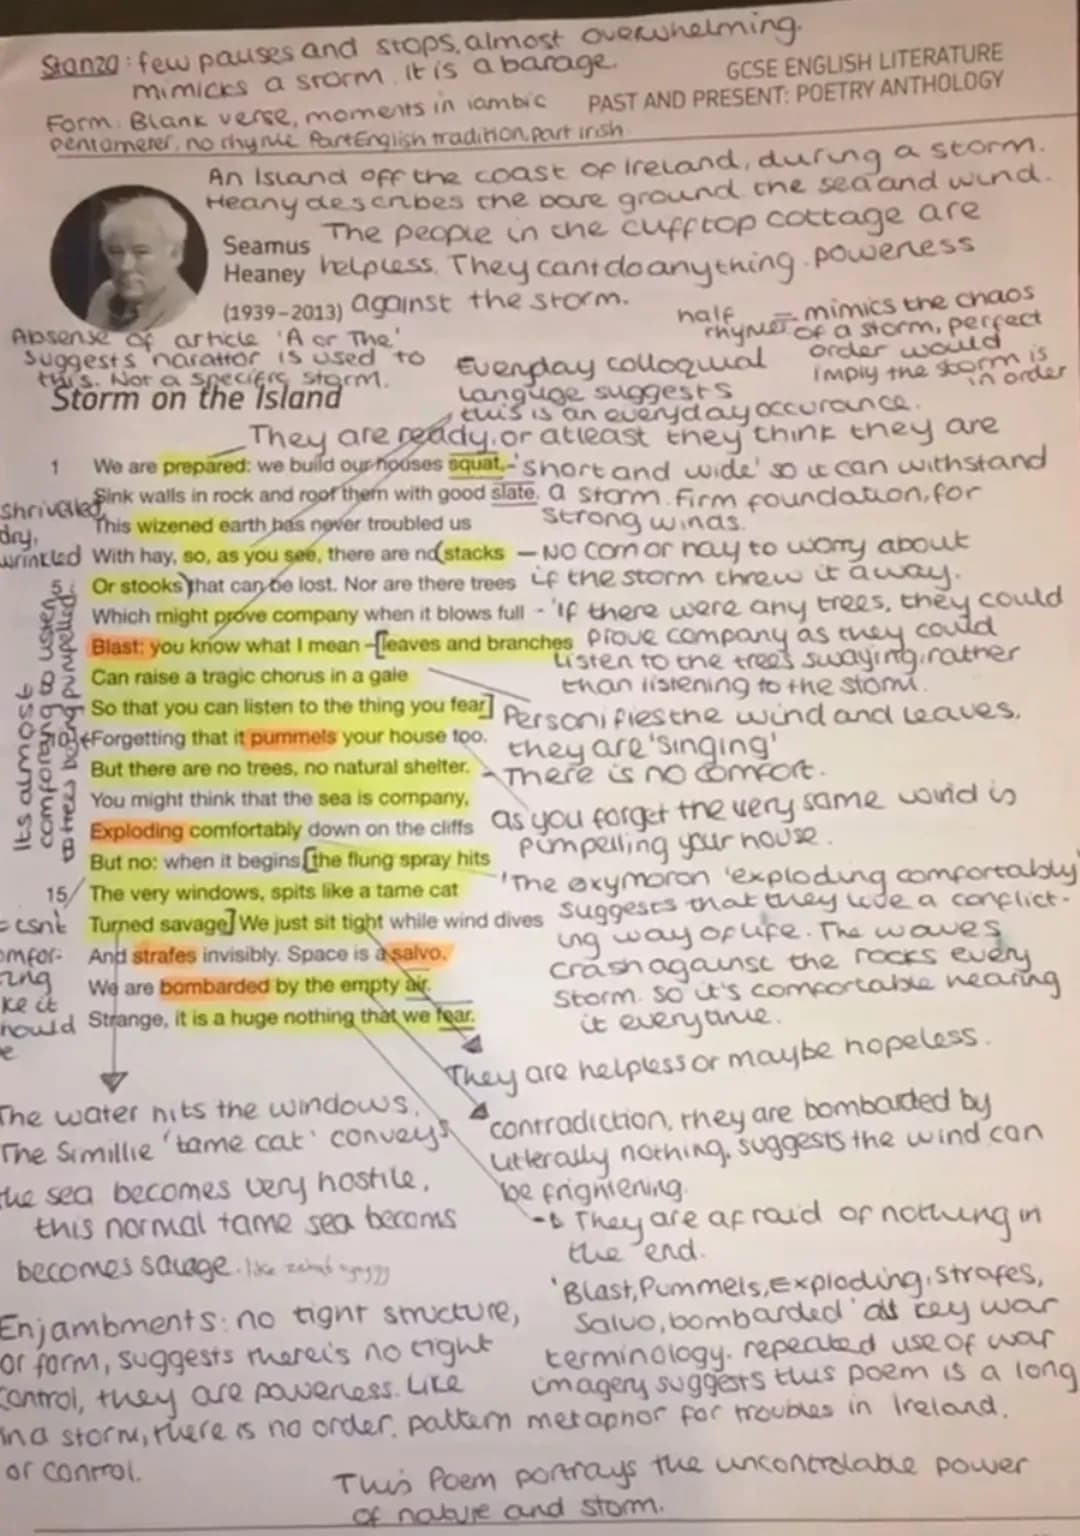 Stanza: few pauses and stops, almost overwhelming.
mimicks a storm. It is a barage.
GCSE ENGLISH LITERATURE
PAST AND PRESENT: POETRY ANTHOLOGY
Form: Blank verse, moments in iambic
pentameter, no rhyme. Part English tradition, part irish
An Island off the coast of Ireland, during a storm.
Heany describes the bare ground. the sea and wind.
The people in the clifftop cottage are
helpless. They cant do anything. poweness
against the storm.
Seamus
Heaney
(1939–2013)
half rhyme = mimics the chaos
of a storm, perfect
order would
imply the storm is
in order
Absense of article 'A or The'
suggests narattor is used to
this. Not a specific storm.
Everyday colloqual
languge suggests
this is an everyday occurance.
Storm on the Island
They are ready, or atleast they think they are
1 We are prepared: we build our houses squat,
- 'Short and wide' so it can withstand
Sink walls in rock and roof them with good slate.
a storm. firm foundation, for
strong winds.
shrivelled,
dry,
wrinkled
This wizened earth has never troubled us
With hay, so, as you see, there are no stacks
— No corn or hay to worry about
5 Or stooks that can be lost. Nor are there trees
if the storm threw it away.
Which might prove company when it blows full
- 'If there were any trees, they could
Blast: you know what I mean – leaves and branches
prove company as they could
listen to the trees swaying, rather
than listening to the storm.
Can raise a tragic chorus in a gale
So that you can listen to the thing you fear
Personifies the wind and leaves.
they are 'singing'
10 Forgetting that it pummels your house too.
But there are no trees, no natural shelter.
- There is no comfort.
Its almost
comforting to listen
to trees being pumpelled.
You might think that the sea is company,
as you forget the very same wind is
pumpelling your house.
Exploding comfortably down on the cliffs
But no: when it begins, the flung spray hits
'The oxymoron 'exploding comfortably'
suggests that they live a conflict-
ing way of life. The waves
crash against the rocks every
storm. so it's comfortable hearing
it everytime.
15 The very windows, spits like a tame cat
Turned savage. We just sit tight while wind dives
And strafes invisibly. Space is a salvo,
We are bombarded by the empty air.
Strange, it is a huge nothing that we fear.
They are helpless or maybe hopeless.
contradiction, they are bombarded by
litterally nothing, suggests the wind can
be frightening.
They are afraid of nothing in
the end.
The water hits the windows.
The Simillie 'tame cat' conveys
the sea becomes very hostile,
this normal tame sea becoms
becomes savage.
'Blast, Pummels, Exploding, Strafes,
Salvo, bombarded' all key war
terminology. repeated use of war
imagery suggests this poem is a long
metaphor for troubles in Ireland.
Enjambments: no tight structure,
or form, suggests there is no tight
control, they are powerless. Like
in a storm, there is no order, pattern
or control.
This Poem portrays the uncontrolable power
of nature and storm.